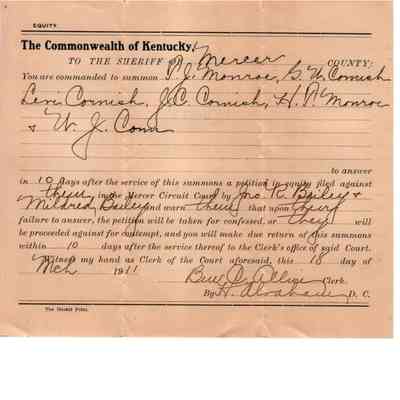 EQUITY.
The Commonwealth of Kentucky,
TO THE SHERIFF OF Mercer COUNTY:
You are commanded to summon P. J. Monroe, G. W. Cornish
Levi Cornish, J. C. Cornish, H. P. Monroe
& W. J. Conn
to answer
in 10 days after the service of this summons a petition in equity filed against
them in the Mercer Circuit Court by Jno R. Bailey &
Mildred Bailey and warn them that upon their
failure to answer, the petition will be taken for confessed, or they will
be proceeded against for contempt, and you will make due return of this summons
within 10 days after the service thereof to the Clerk's office of said Court.
Witness my hand as Clerk of the Court aforesaid, this 18 day of
Mch 1911
Ben C. Allin Clerk.
By H. Abraham D. C.
The Herald Print.